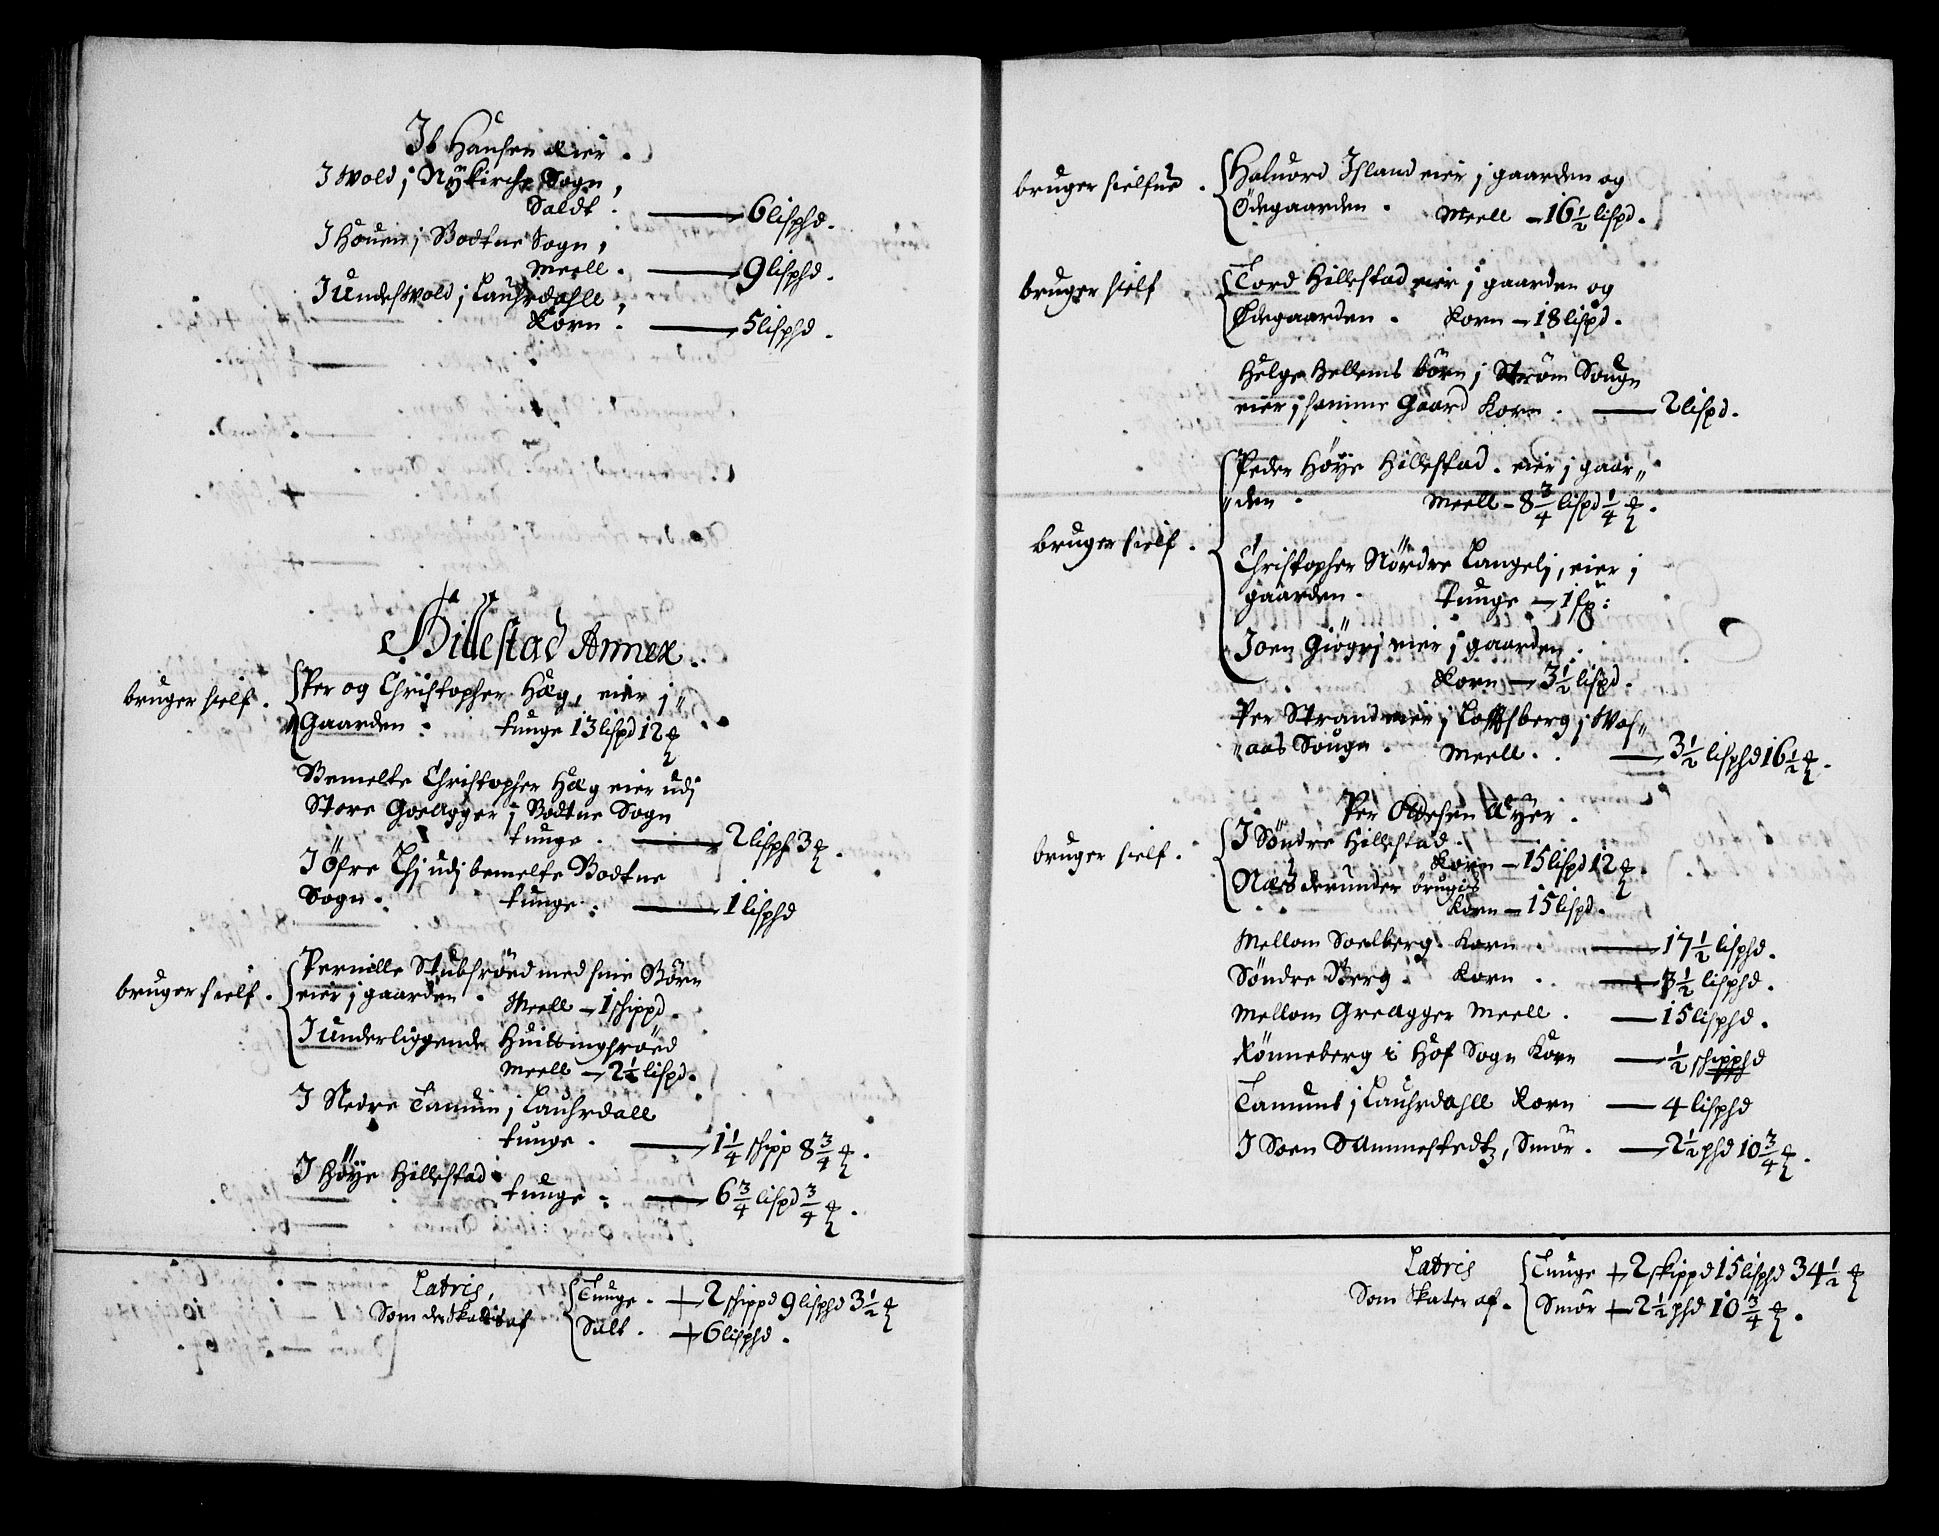 Ib Hansen Eier.
I Wold j Nykirche Sogn,
Saldt. — 6 lisphd.
I Houen j Bodtne Sogn,
Meell. — 9 lisphd.
I Undeswold j Lauhrdahll,
Korn. — 5 lisphd.
Hillestad Annex.
bruger sielf. Per og Christopher Hæg, eier j
Gaarden. tunge 13 lispd 12 ℔
Bemelte Christopher Hæg eier udj
Store Goeagger j Bodtne Sogn
tunge. — 2 lisph 3 ℔.
I Öfre Lhj udj bemelte Bodtne
Sogn. tunge. — 1 lisphd
bruger sielf. Pernille Stubsröed med sine Börn
eier j gaarden. Meell — 1 schippd.
I underliggende Huittingsroed
Meell — 2 1/2 lispd.
I Nedre Tamum j Lauhrdall
tunge. — 1 1/4 schipp 8 3/4 ℔.
I Höye Hillestad
tunge. — 6 3/4 lispd 3/4 ℔.
Latris,
Som de Skatis af
Tunge. — 2 schippd 9 lisphd 3 1/2 ℔
Salt. — 6 lisphd.
bruger sielfue. Haluord Island eier j gaarden og
Ödegaarden. Meell — 16 1/2 lispd.
bruger sielf Tord Hillestad eier j gaarden og
Ödegaarden. Korn — 18 lispd.
Helge Hellems börn j Ström Sougn
eier j samme Gaard Korn. — 2 lispd.
Peder Höye Hillestad. eier j gaar„
„den. Meell — 8 3/4 lispd 1/4 ℔.
bruger sielf. Christopher Nördre Langelj, eier j
gaarden. tunge — 1 sp:
Joen Giögrj eier j gaarden.
Korn — 3 1/2 lispd.
Per Strand eier j Loffsberg j Wos„
„aas Sougn. Meell. — 3 1/2 lisphd 16 1/2 ℔.
Per Oldesen Eyer.
bruger sielf. I Söndre Hillestad.
Korn — 15 lispd 12 ℔.
Næs derunder brugis
Korn — 15 lispd.
Mellom Soelberg. Korn. — 17 1/2 lisphd.
Söndre Berg. Korn. — 3 1/2 lisphd.
Mellom Greagger Meell. — 15 lisphd.
Rönneberg i Hof Sogn Korn — 1/2 schipphd
Tamums j Lauhrdahll Korn — 4 lisphd
I Soen Dammestedtz, Smör. — 2 1/2 phd 10 3/4 ℔.
Latris
Som Skater af.
Tunge — 2 skippd 15 lisphd 34 1/2 ℔
Smör — 2 1/2 phd 10 3/4 ℔.